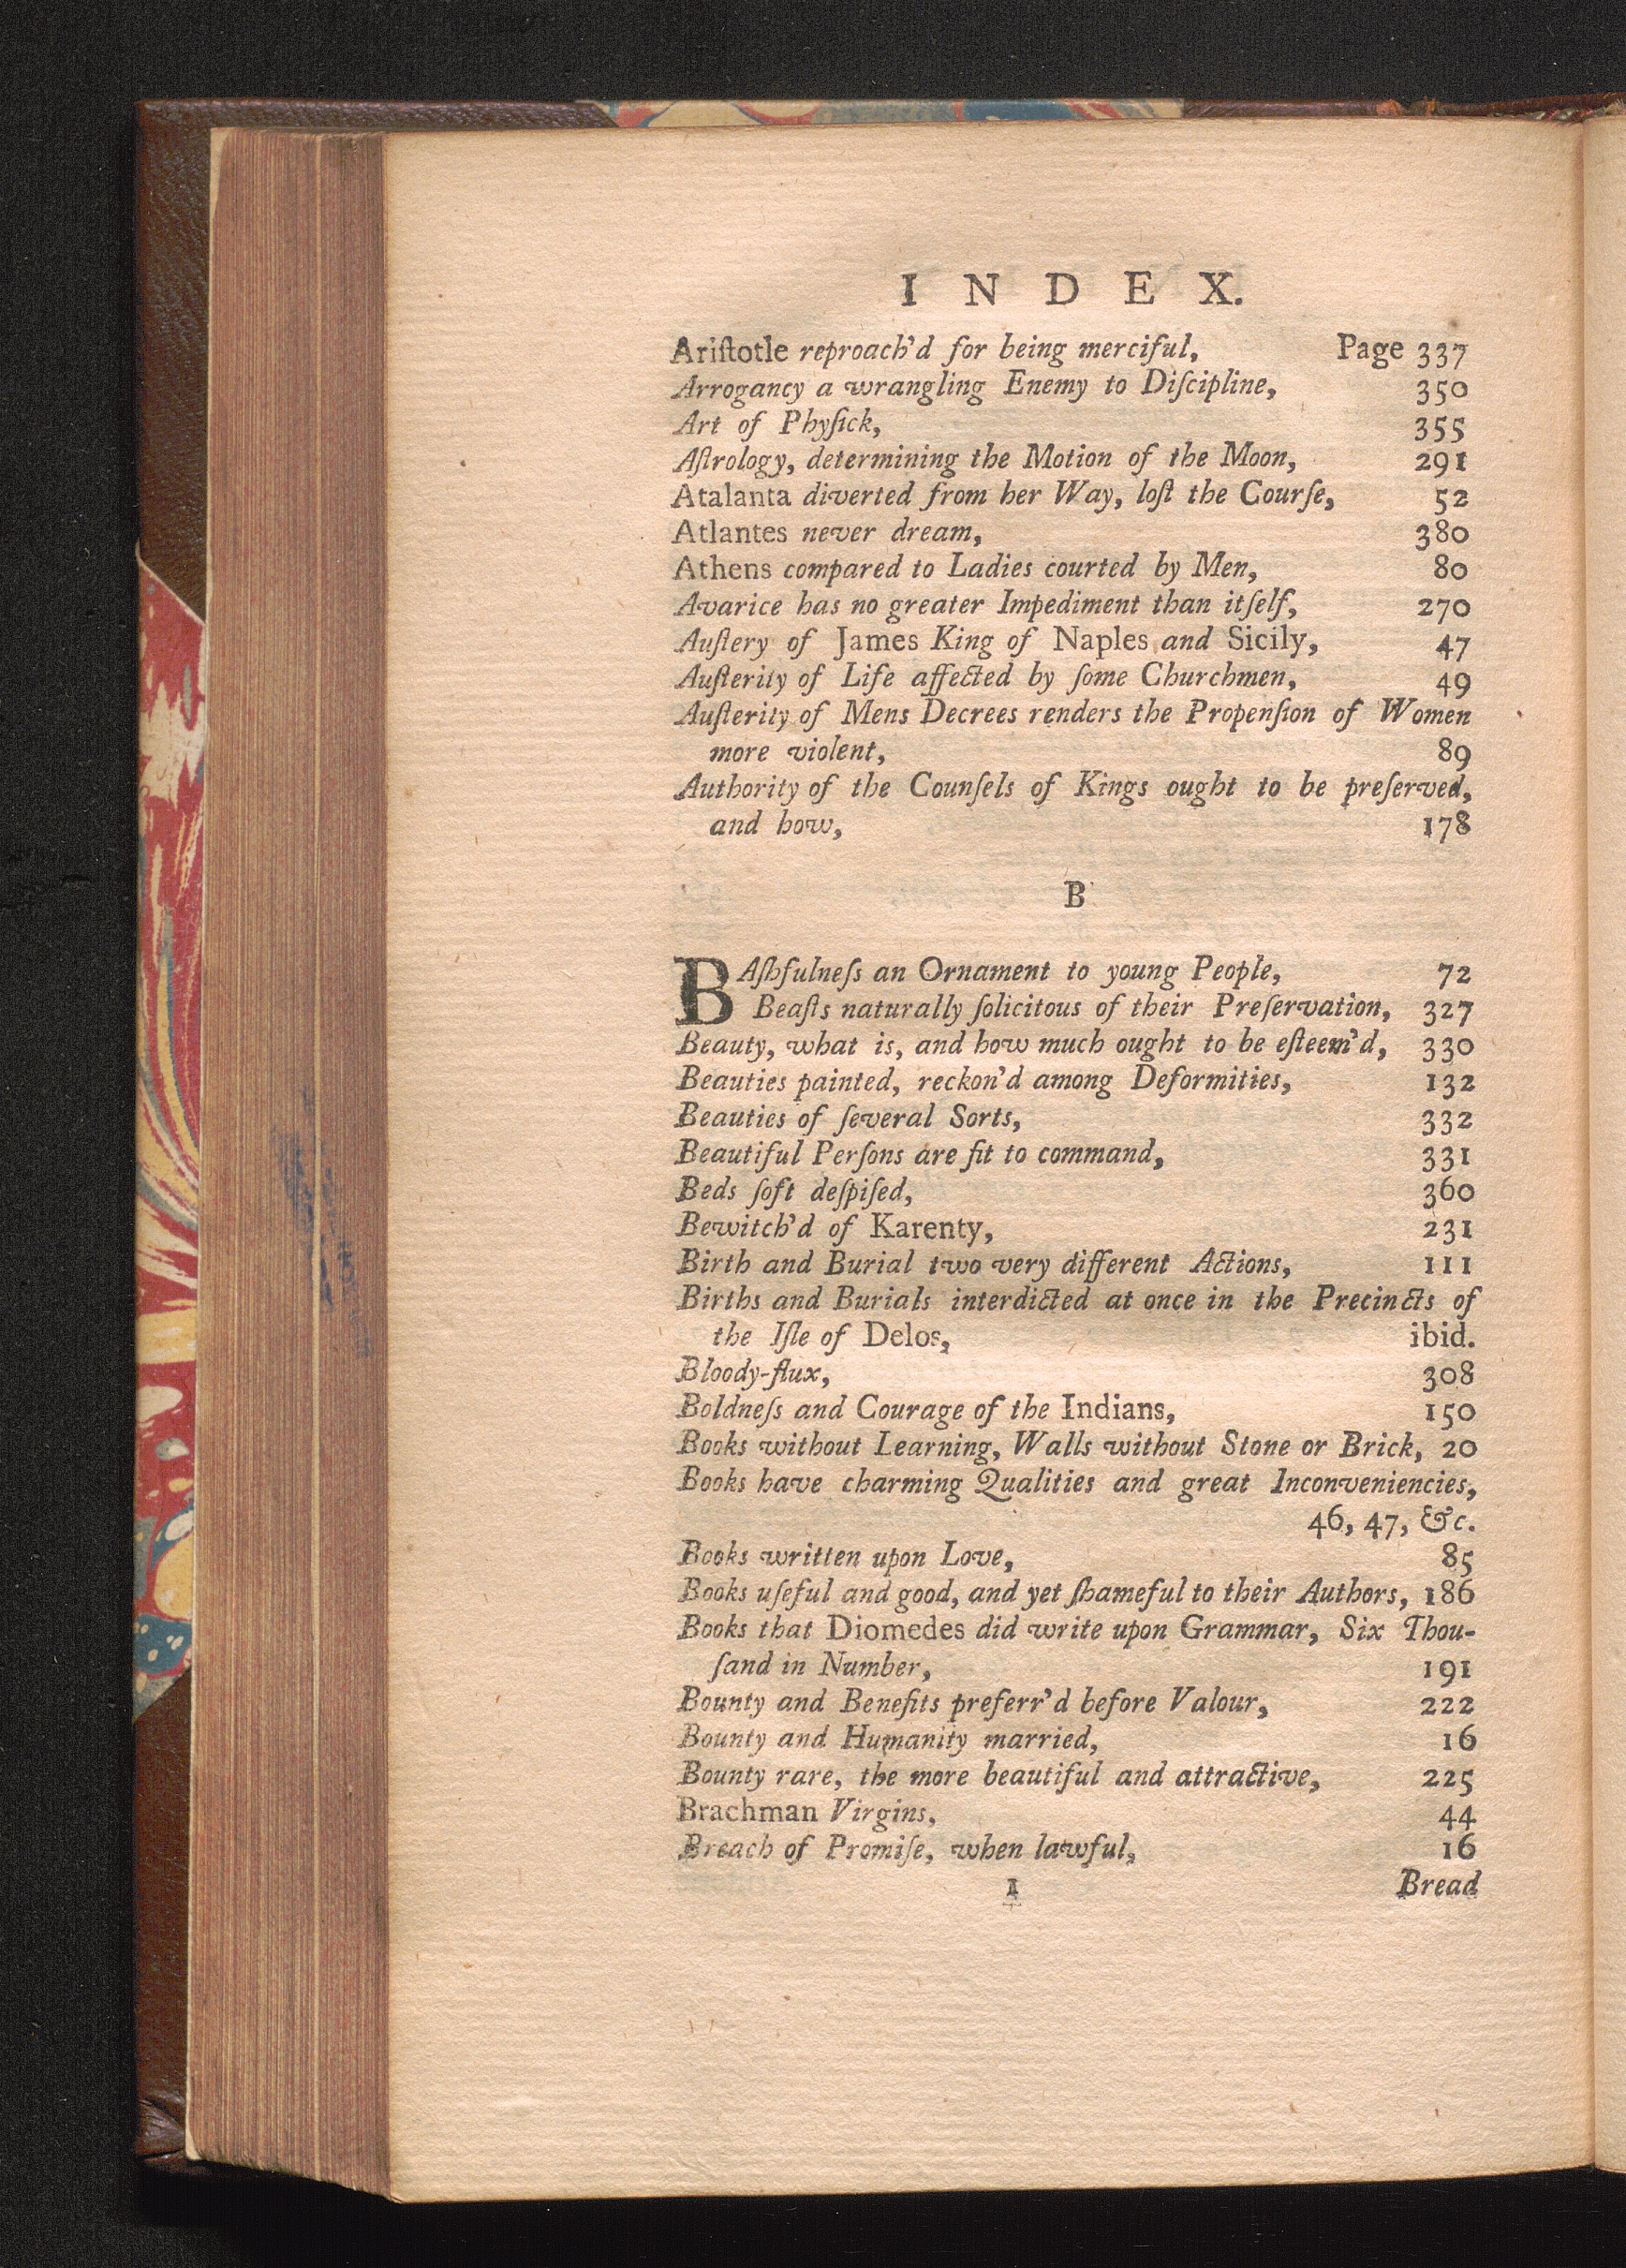 INDEX.
Ariſtotle reproach'd for being merciful, Page 337
Arrogancy a wrangling Enemy to Diſcipline, 350
Art of Phyſick, 355
Aſtrology, determining the Motion of the Moon, 291
Atalanta diverted from her Way, loſt the Courſe, 52
Atlantes never dream, 380
Athens compared to Ladies courted by Men, 80
Avarice has no greater Impediment than itſelf, 270
Auſtery of James King of Naples and Sicily, 47
Auſterity of Life affected by ſome Churchmen, 49
Auſterity of Mens Decrees renders the Propenſion of Women
more violent, 89
Authority of the Counſels of Kings ought to be preſerved,
and how, 178
B
BAſhfulneſs an Ornament to young People, 72
Beaſts naturally ſolicitous of their Preſervation, 327
Beauty, what is, and how much ought to be eſteem'd, 330
Beauties painted, reckon'd among Deformities, 132
Beauties of ſeveral Sorts, 332
Beautiful Perſons are fit to command, 331
Beds ſoft deſpiſed, 360
Bewitch'd of Karenty, 231
Birth and Burial two very different Actions, 111
Births and Burials interdicted at once in the Precincts of
the Iſle of Delos, ibid.
Bloody-flux, 308
Boldneſs and Courage of the Indians, 150
Books without Learning, Walls without Stone or Brick, 20
Books have charming Qualities and great Inconveniencies,
46, 47, &c.
Books written upon Love, 85
Books uſeful and good, and yet ſhameful to their Authors, 186
Books that Diomedes did write upon Grammar, Six Thou-
ſand in Number, 191
Bounty and Benefits preferr'd before Valour, 222
Bounty and Humanity married, 16
Bounty rare, the more beautiful and attractive, 225
Brachman Virgins, 44
Breach of Promiſe, when lawful, 16
1 Bread